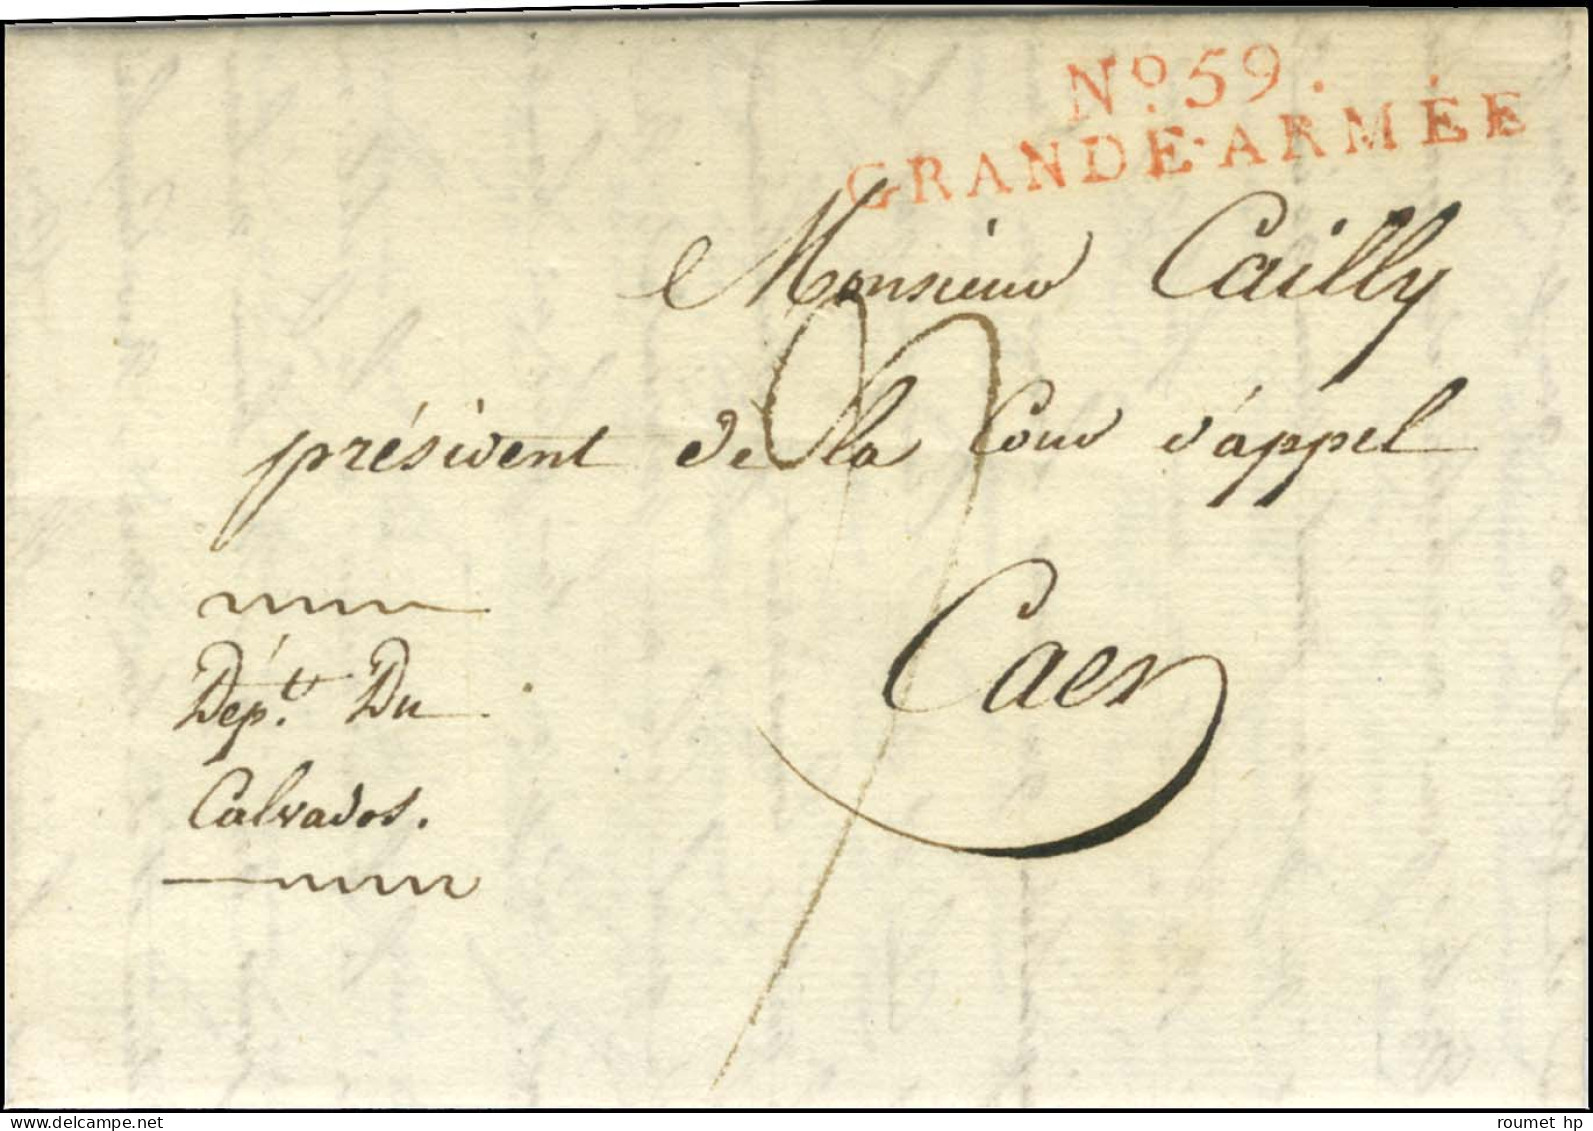 No. 59.
GRANDE-ARMÉE
Monsieur Cailly
président de la Cour d'áppel
Caen
Dépt. Du
Calvados.
roumet hp